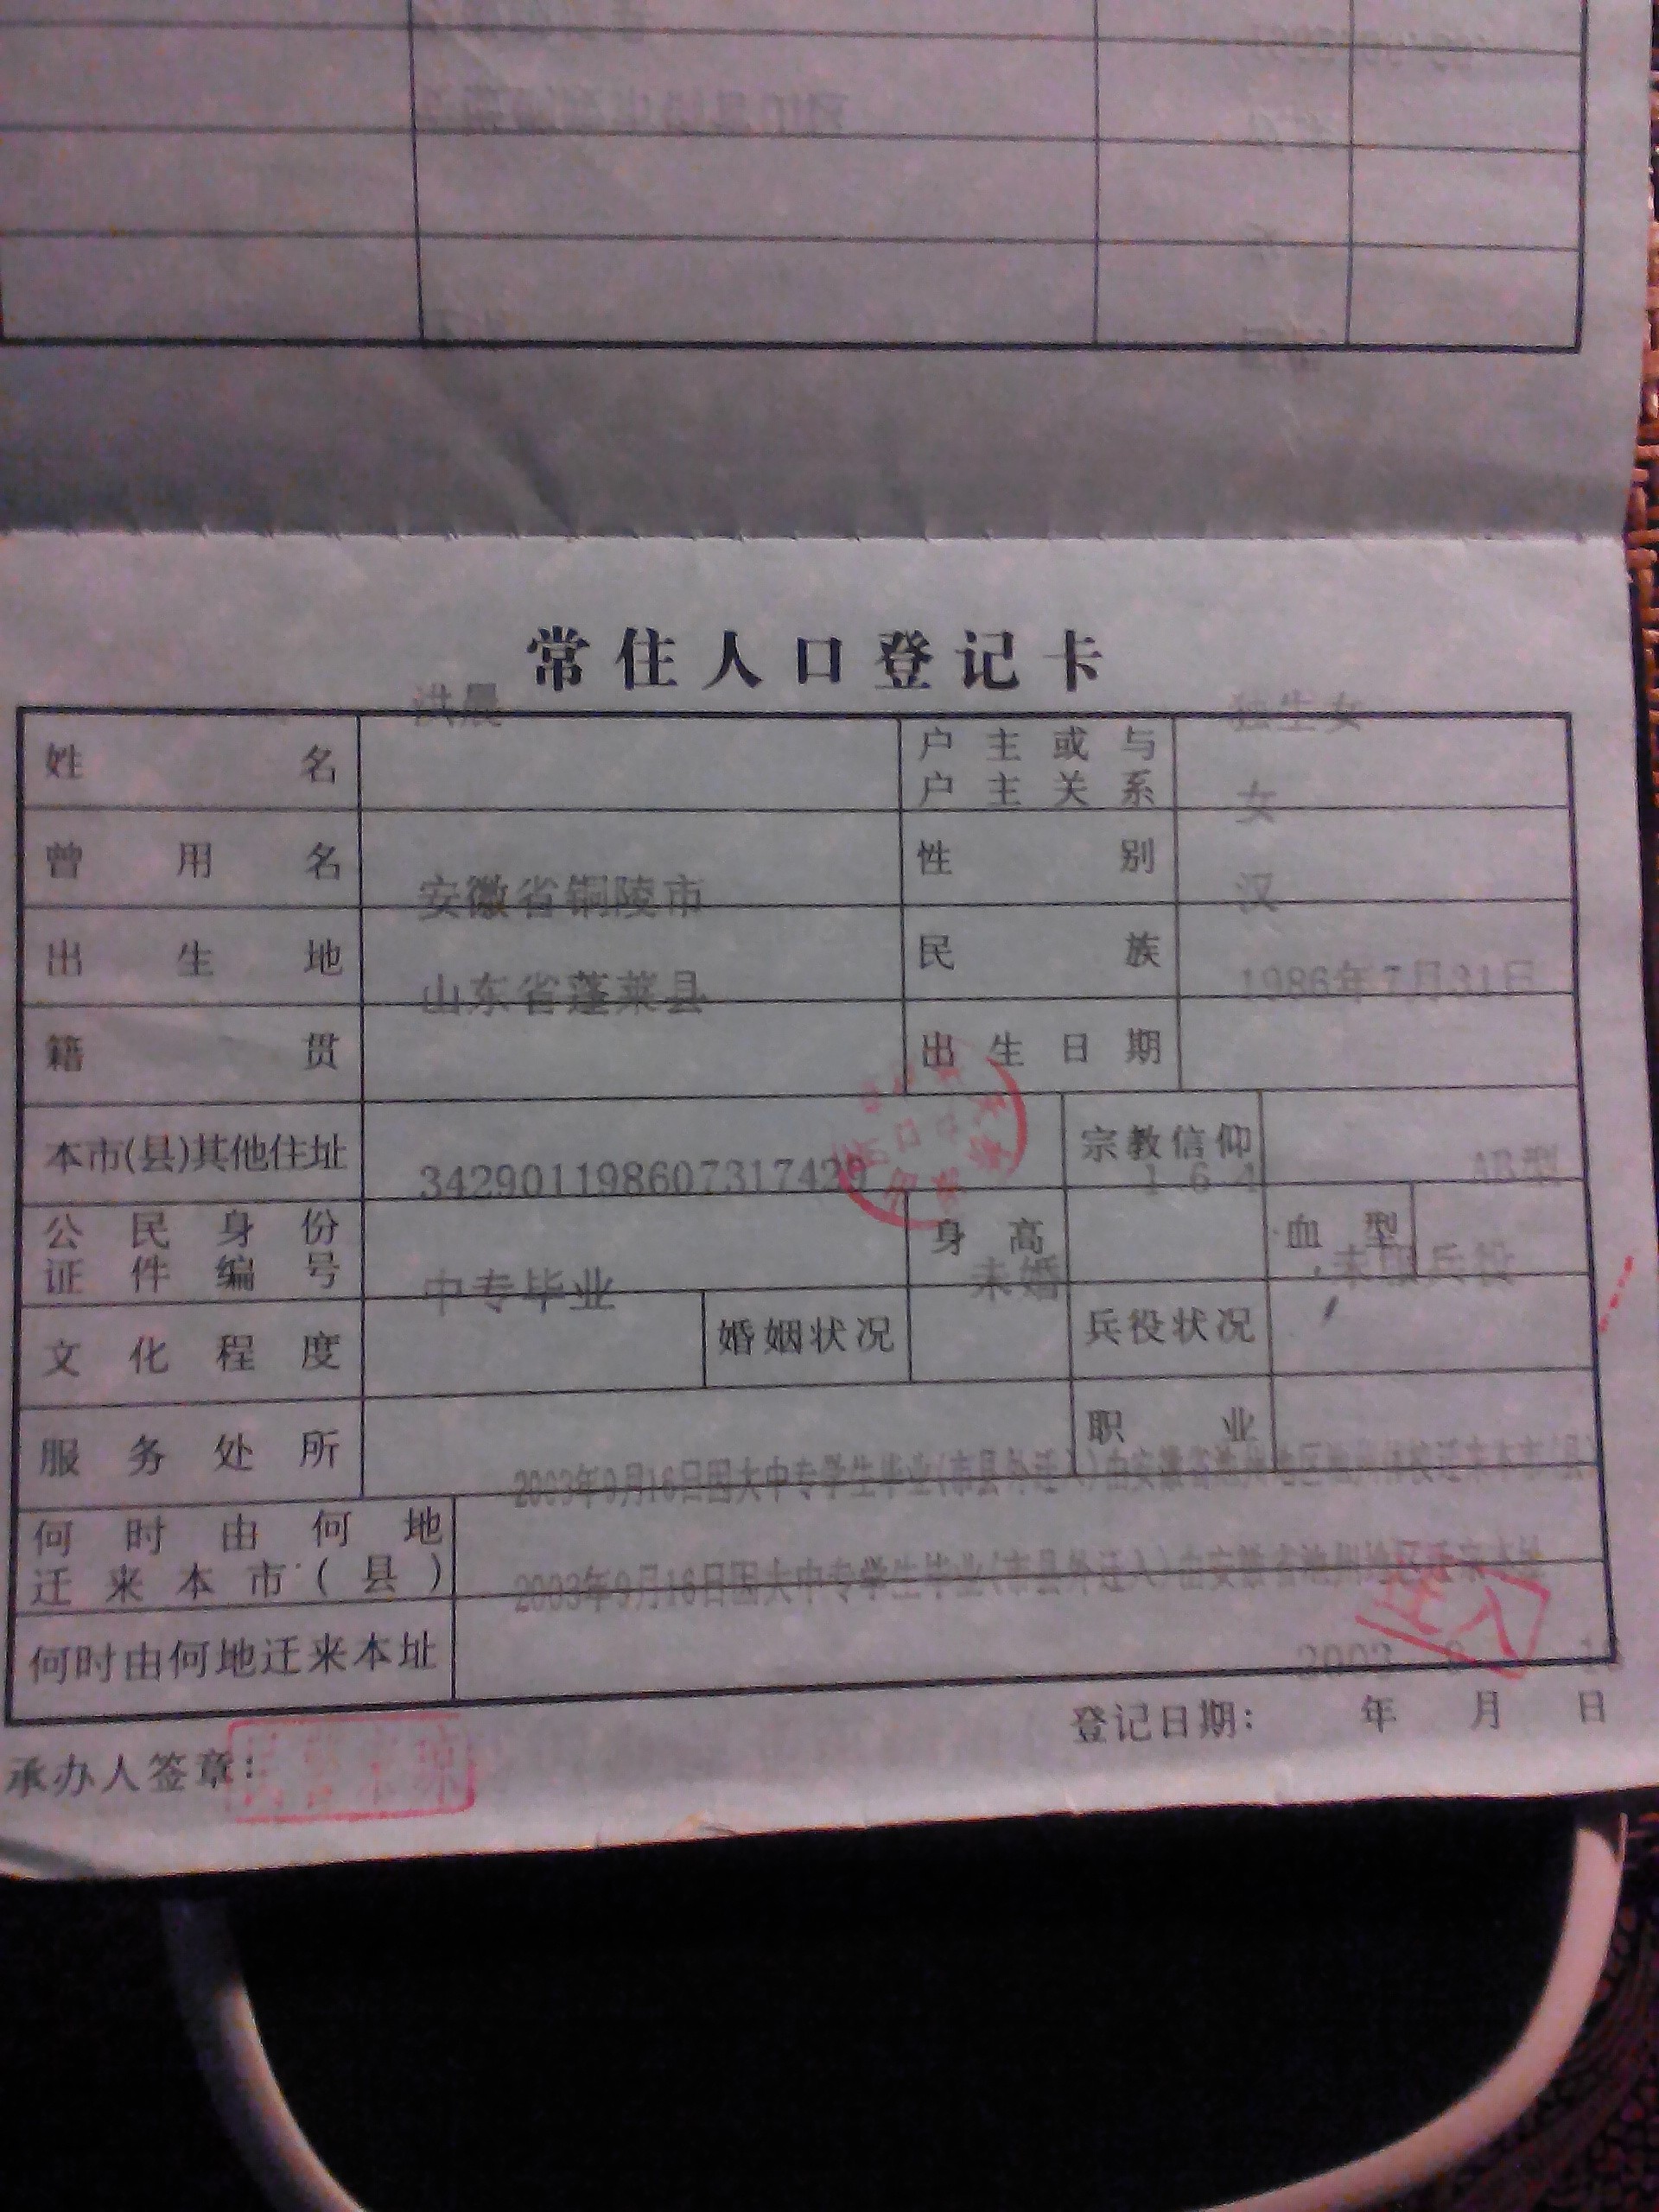 常住人口登记卡
洪晨 独生女
姓名 户主或与户主关系
女
曾用名 性别
安徽省铜陵市 汉
出生地 民族
山东省蓬莱县 1986年7月31日
籍贯 出生日期
本市(县)其他住址 宗教信仰
342901198607317429 164 AB型
公民身份证件编号 身高 血型
中专毕业 未婚 未服兵役
文化程度 婚姻状况 兵役状况
服务处所 职业
2003年9月16日因大中专学生毕业(市县外迁入)由安徽省池州地区 迁来本市(县)
何时由何地迁来本市(县)
2003年9月16日因大中专学生毕业(市县外迁入)由安徽省池州地区迁来本址
何时由何地迁来本址
迁入
登记日期: 年 月 日
承办人签章: